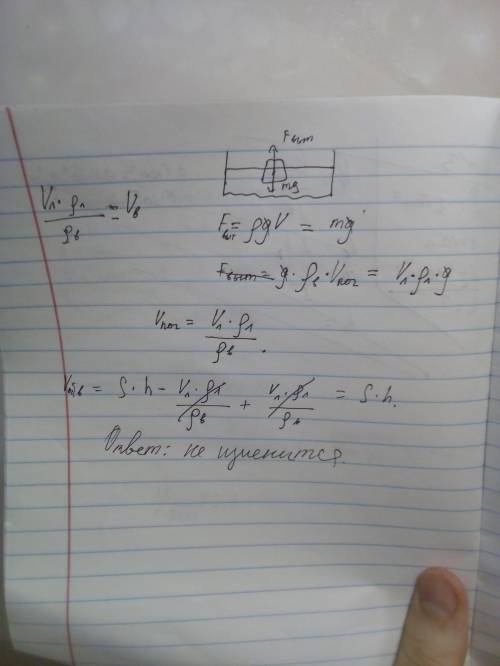 Fвыт
mg
Vл·ρл/ρв = Vв
Fвыт = ρgV = mg
Fвыт = g·ρв·Vпог = Vл·ρл·g
Vпог = Vл·ρл/ρв.
= S·h − Vл·ρл/ρв + Vл·ρл/ρв = S·h.
Ответ: не изменится.